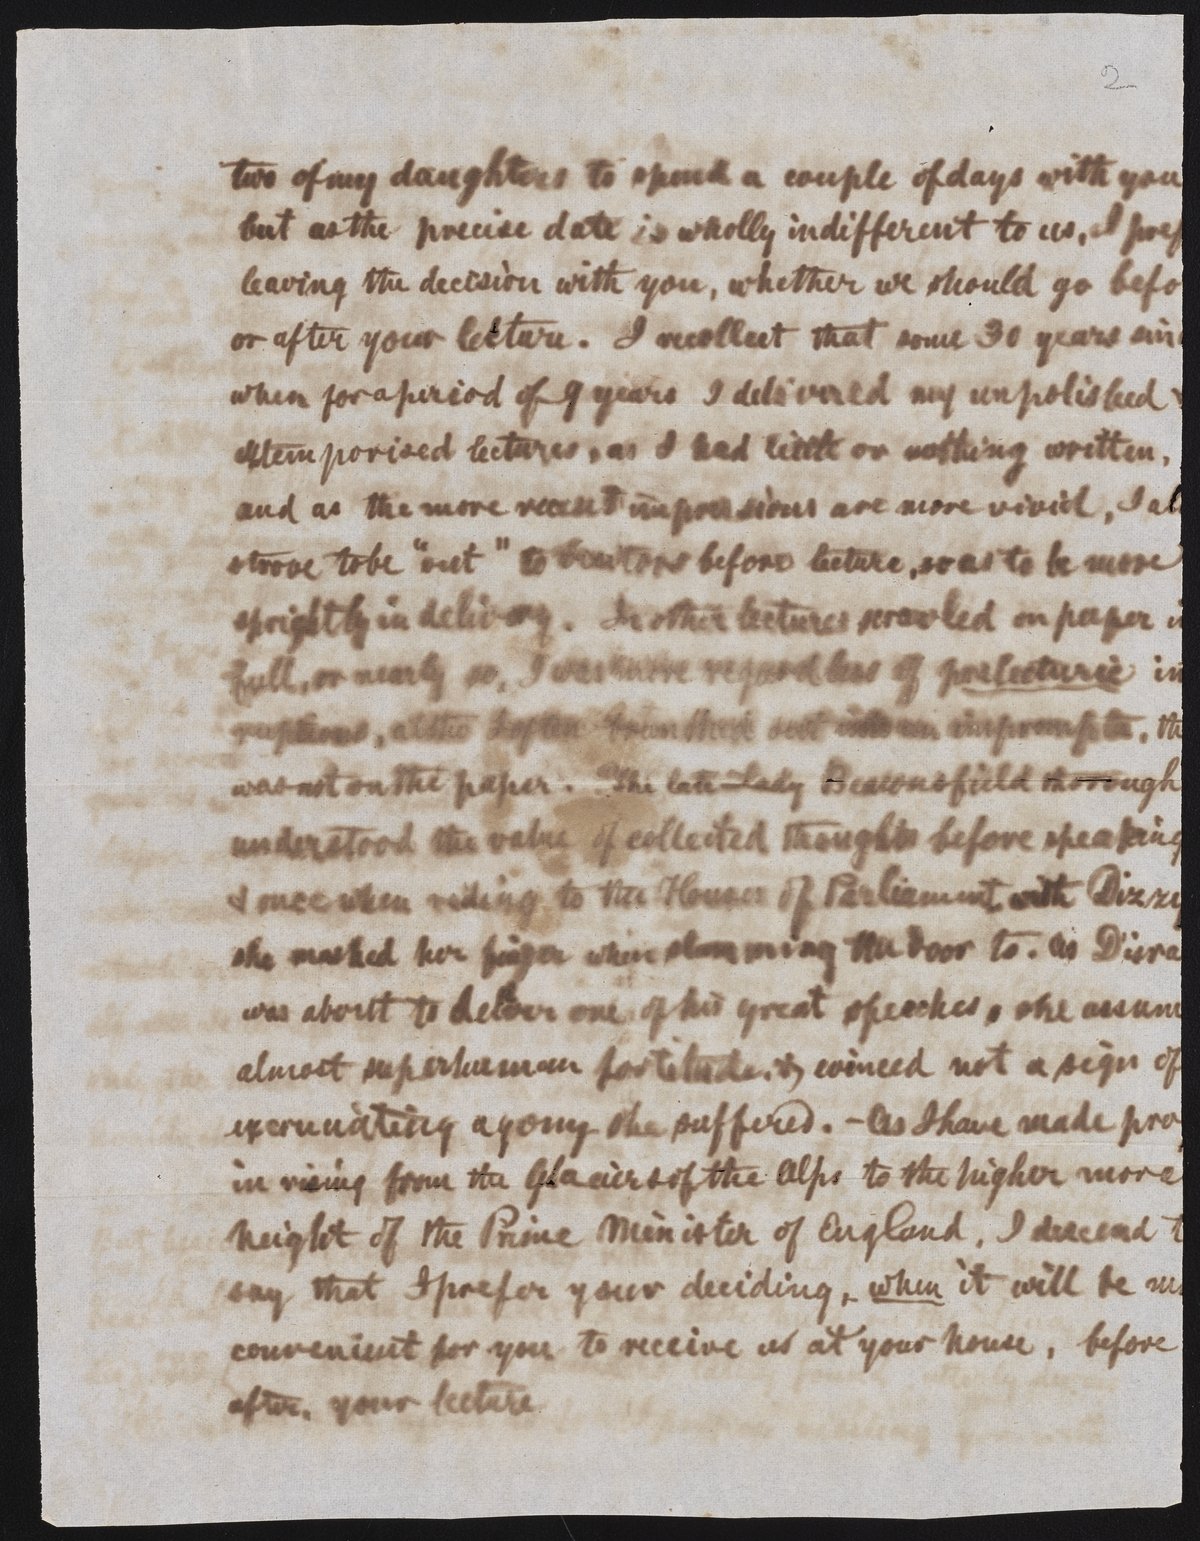 2
two of my daughters to spend a couple of days with you
but as the precise date is wholly indifferent to us, I pref
leaving the decision with you, whether we should go befo
or after your lecture. I recollect that some 30 years sin
when for a period of 9 years I delivered my unpolished &
extemporised lectures, as I had little or nothing written,
and as the more recent impressions are more vivid, I al
strove to be "out" to visitors before lecture, so as to be more
sprightly in delivery. In other lectures scrawled on paper in
full, or nearly so, I was more regardless of prelecturie in
ruptions, altho I often branched out into an impromptu, th
was not on the paper. The late Lady Beaconsfield thorough
understood the value of collected thoughts before speaking
& once when riding to the Houses of Parliament with Dizzy
she mashed her finger when slamming the door to. As Disra
was about to deliver one of his great speeches, she assum
almost superhuman fortitude, & evinced not a sign of
excruciating agony she suffered. - As I have made pro
in rising from the Glaciers of the Alps to the higher mora
height of the Prime Minister of England, I descend t
say that I prefer your deciding, when it will be m
convenient for you to receive us at your house, before
after, your lecture